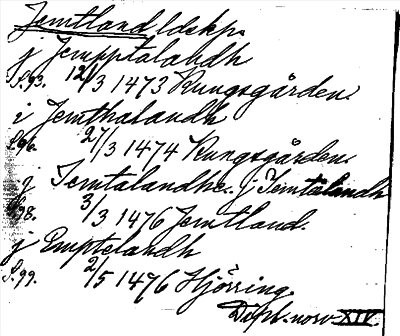 Jemtland ldskp.
j Jempptalandh
S.93. 12/3 1473 Kungsgården.
i Jemthalandh
S.96. 27/3 1474 Kungsgården.
j Jemtalandhe. j Jemtalandh
S.98. 3/3 1476 Jemtland.
j Emptelandh
S.99. 2/5 1476 Hjörring.
Dipl. norv XIV.